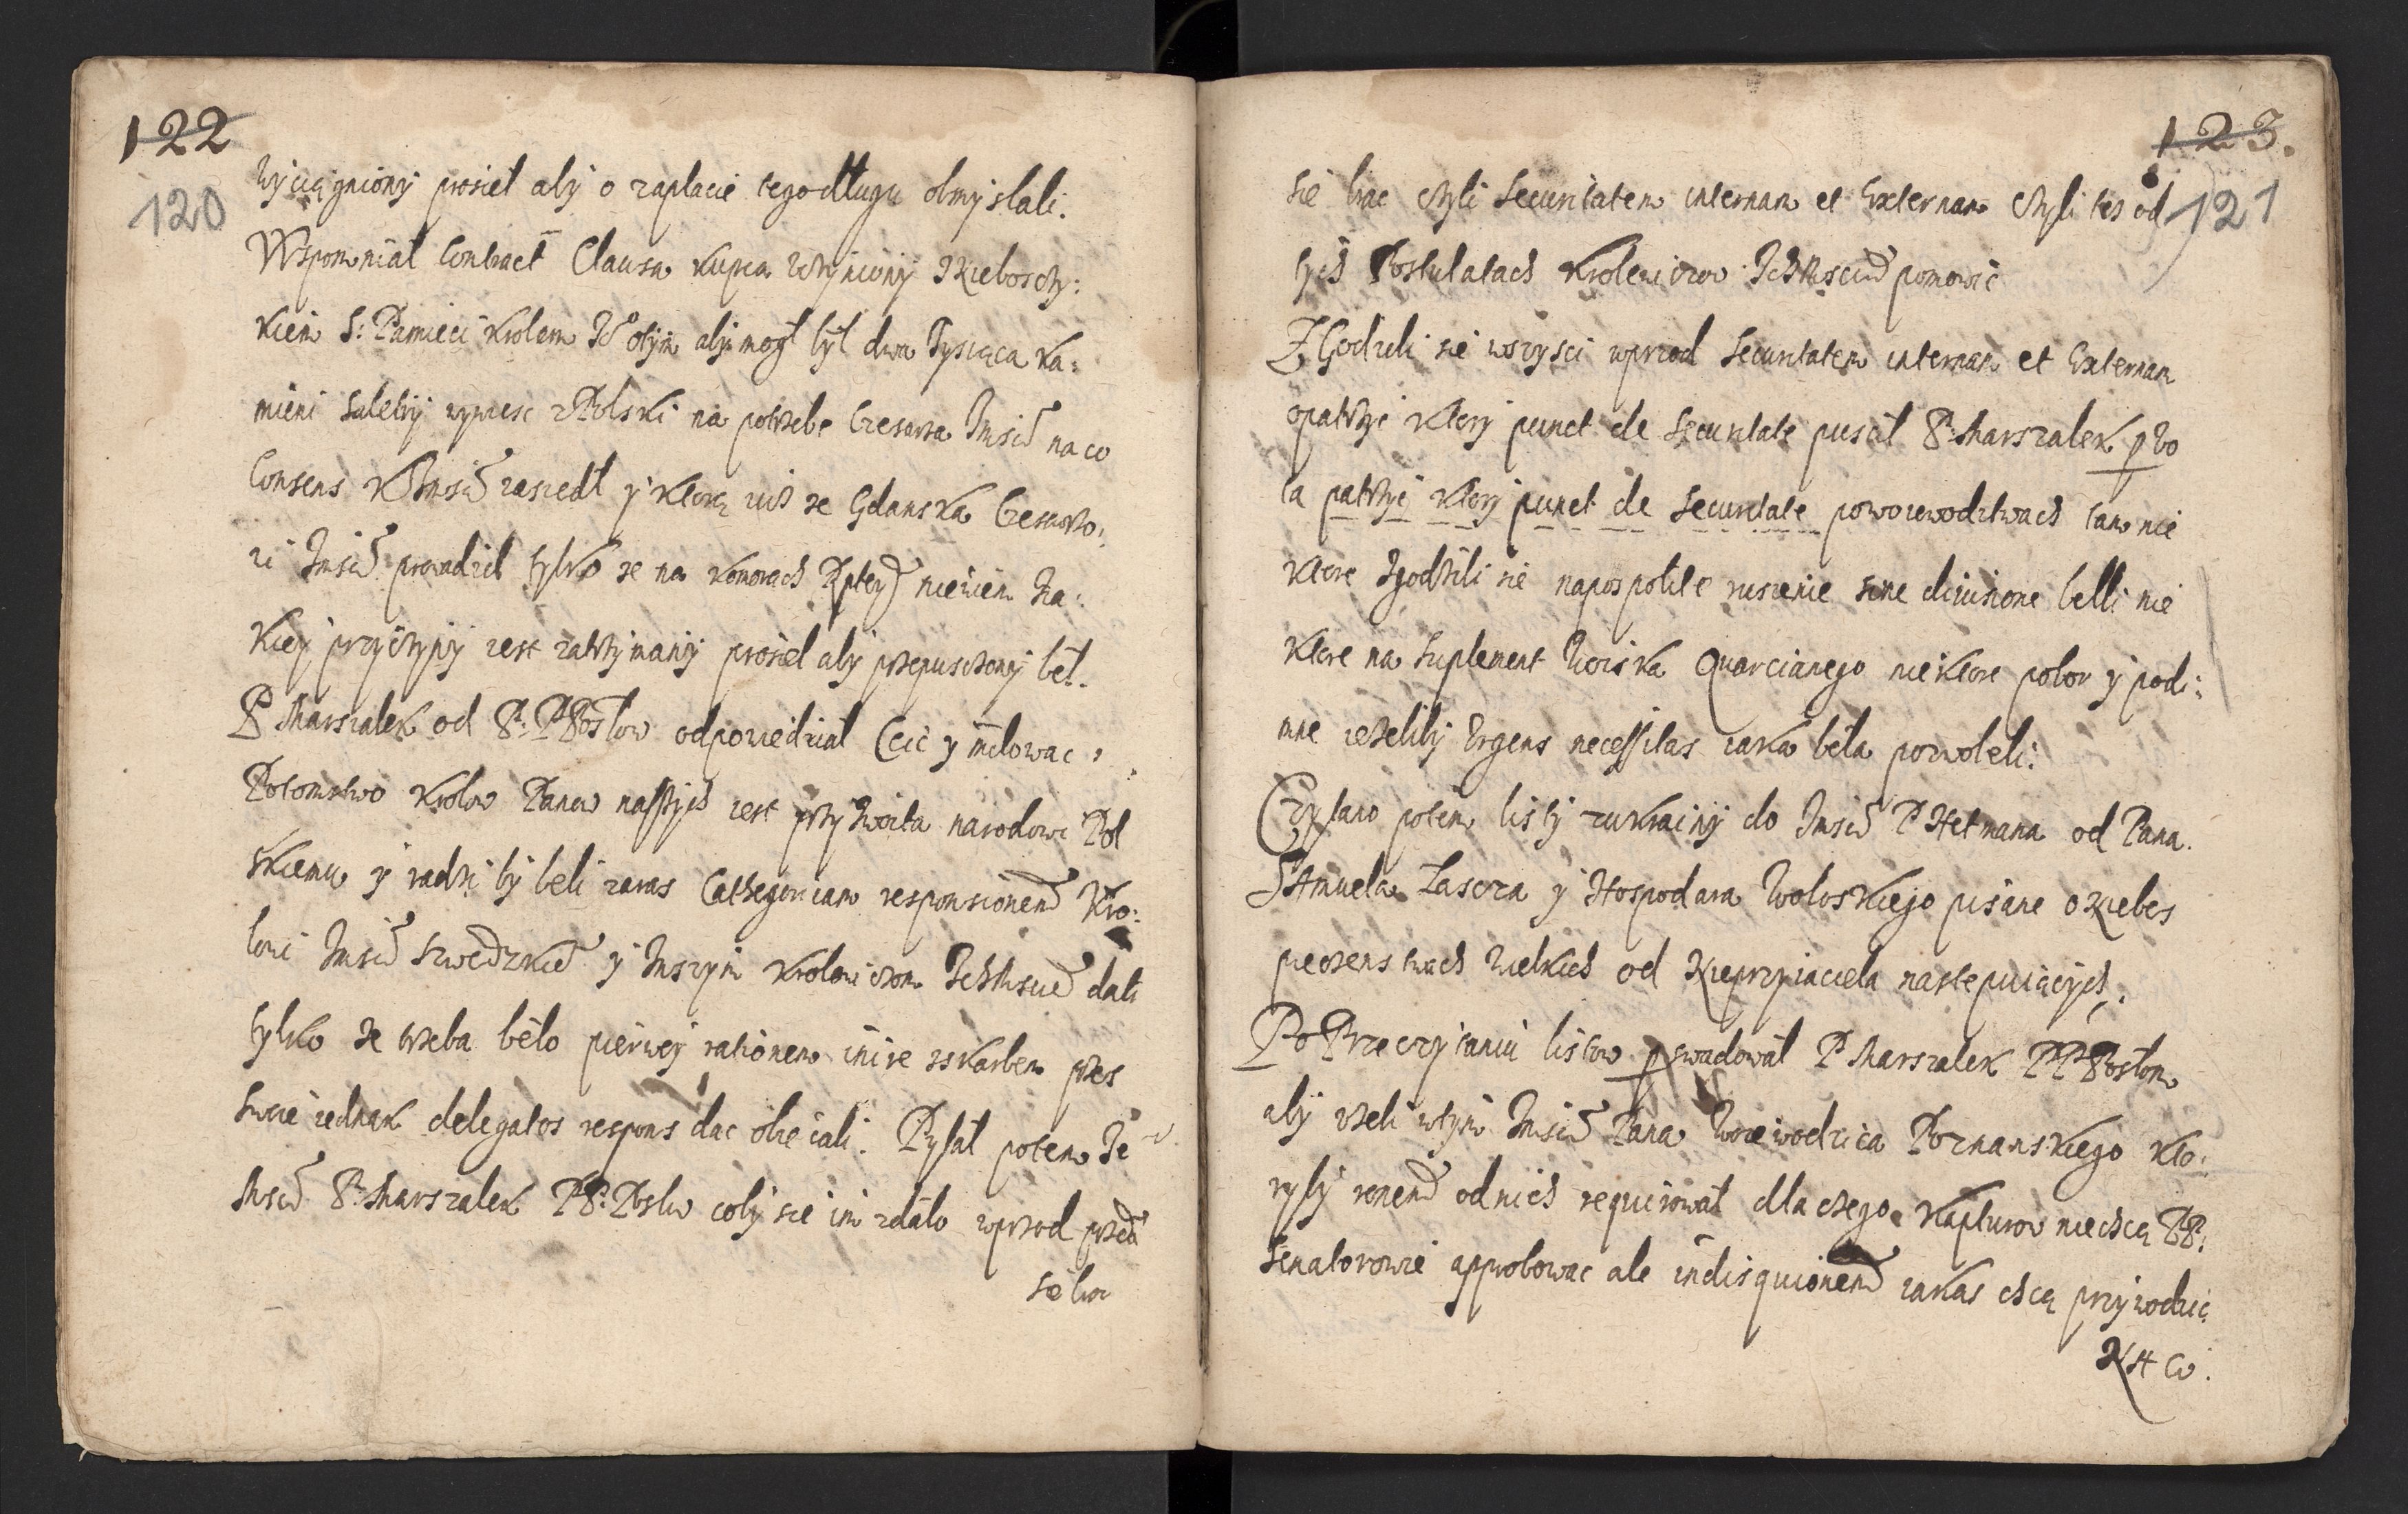 122
120
wyciągniony prosieł aby o zaplacie tego długu obmyslali.
Wspomniał Contract Clausa kupca uczyniony z Niebosczy:
kiem S: Pamieci Krolem Io otym aby mogł był dwa Tysiąca ka:
mieni Saletry wyniesc z Polski na potrzebe Cesarza Jmsci na co
Consens K Jmsci zaszedł y ktorą iusz ze Gdanska Cesarzo:
wi Jmsci prowadzieł tylko ze na komorach Rptey niewiem Ja:
kiey przyczyny iest zatrzymany prosieł aby przepusczony beł.
P Marszalek od P: P Posłow odpowiedział Ccić y miłowac
Potomstwo Krolow Panow naszych iest przyzwoita narodowi Pol
skiemu y radzi by beli zaras Cathegoricam responsionem Kro:
lowi Jmsci Szwedzkie y Inszym Krolewiczom Ichmsciom dali
tylko ze trzeba beło pierwey rationem inire z skarbem przes
swoie iednak delegatos respons dac obiecali. Pytał potem Je
Msci P: Marszalek PP: Posłow coby sie im zdało wprzod przed
se brac
123.
121
sie brac czyli Securitatem internam et Externam czyli tes od
tych Postulatach Krolewiczow Ichmsciow pomowic
Zgodzili sie wszysci wprzod Securitatem internam et Externam
opatrzyc ktory punct de Securitate puscił P: Marszalek p wo
ta patrzyc ktory punct de Securitate powoiewodztwach tam nie
ktore zgodzili sie napospolite ruszenie sine diuisione belli nie
ktore na Suplement Woiska Quarcianego niektore pobor y pod:
mne iezeliby Vrgens necessitas iaka beła pozwoleli:
Czytano potem listy z ukrainy do Jmsci P Hetmana od Pana
Samuela Lascza y Hospodara Wołoskiego pisane o Niebes
pieczenstwach wielkich od Nieprzyiaciela nastepuiących.
Po Przeczytaniu listow p swadował P Marszalek PP Posłom
aby uzeli wtym Jmsci Pana Woiewodzica Poznanskiego kto:
ryby ronem odnich requirował dla czego Kapturow niechcą PP:
Senatorowie approbowac ale indisquionem iakas chcą przywodzic
NH w.